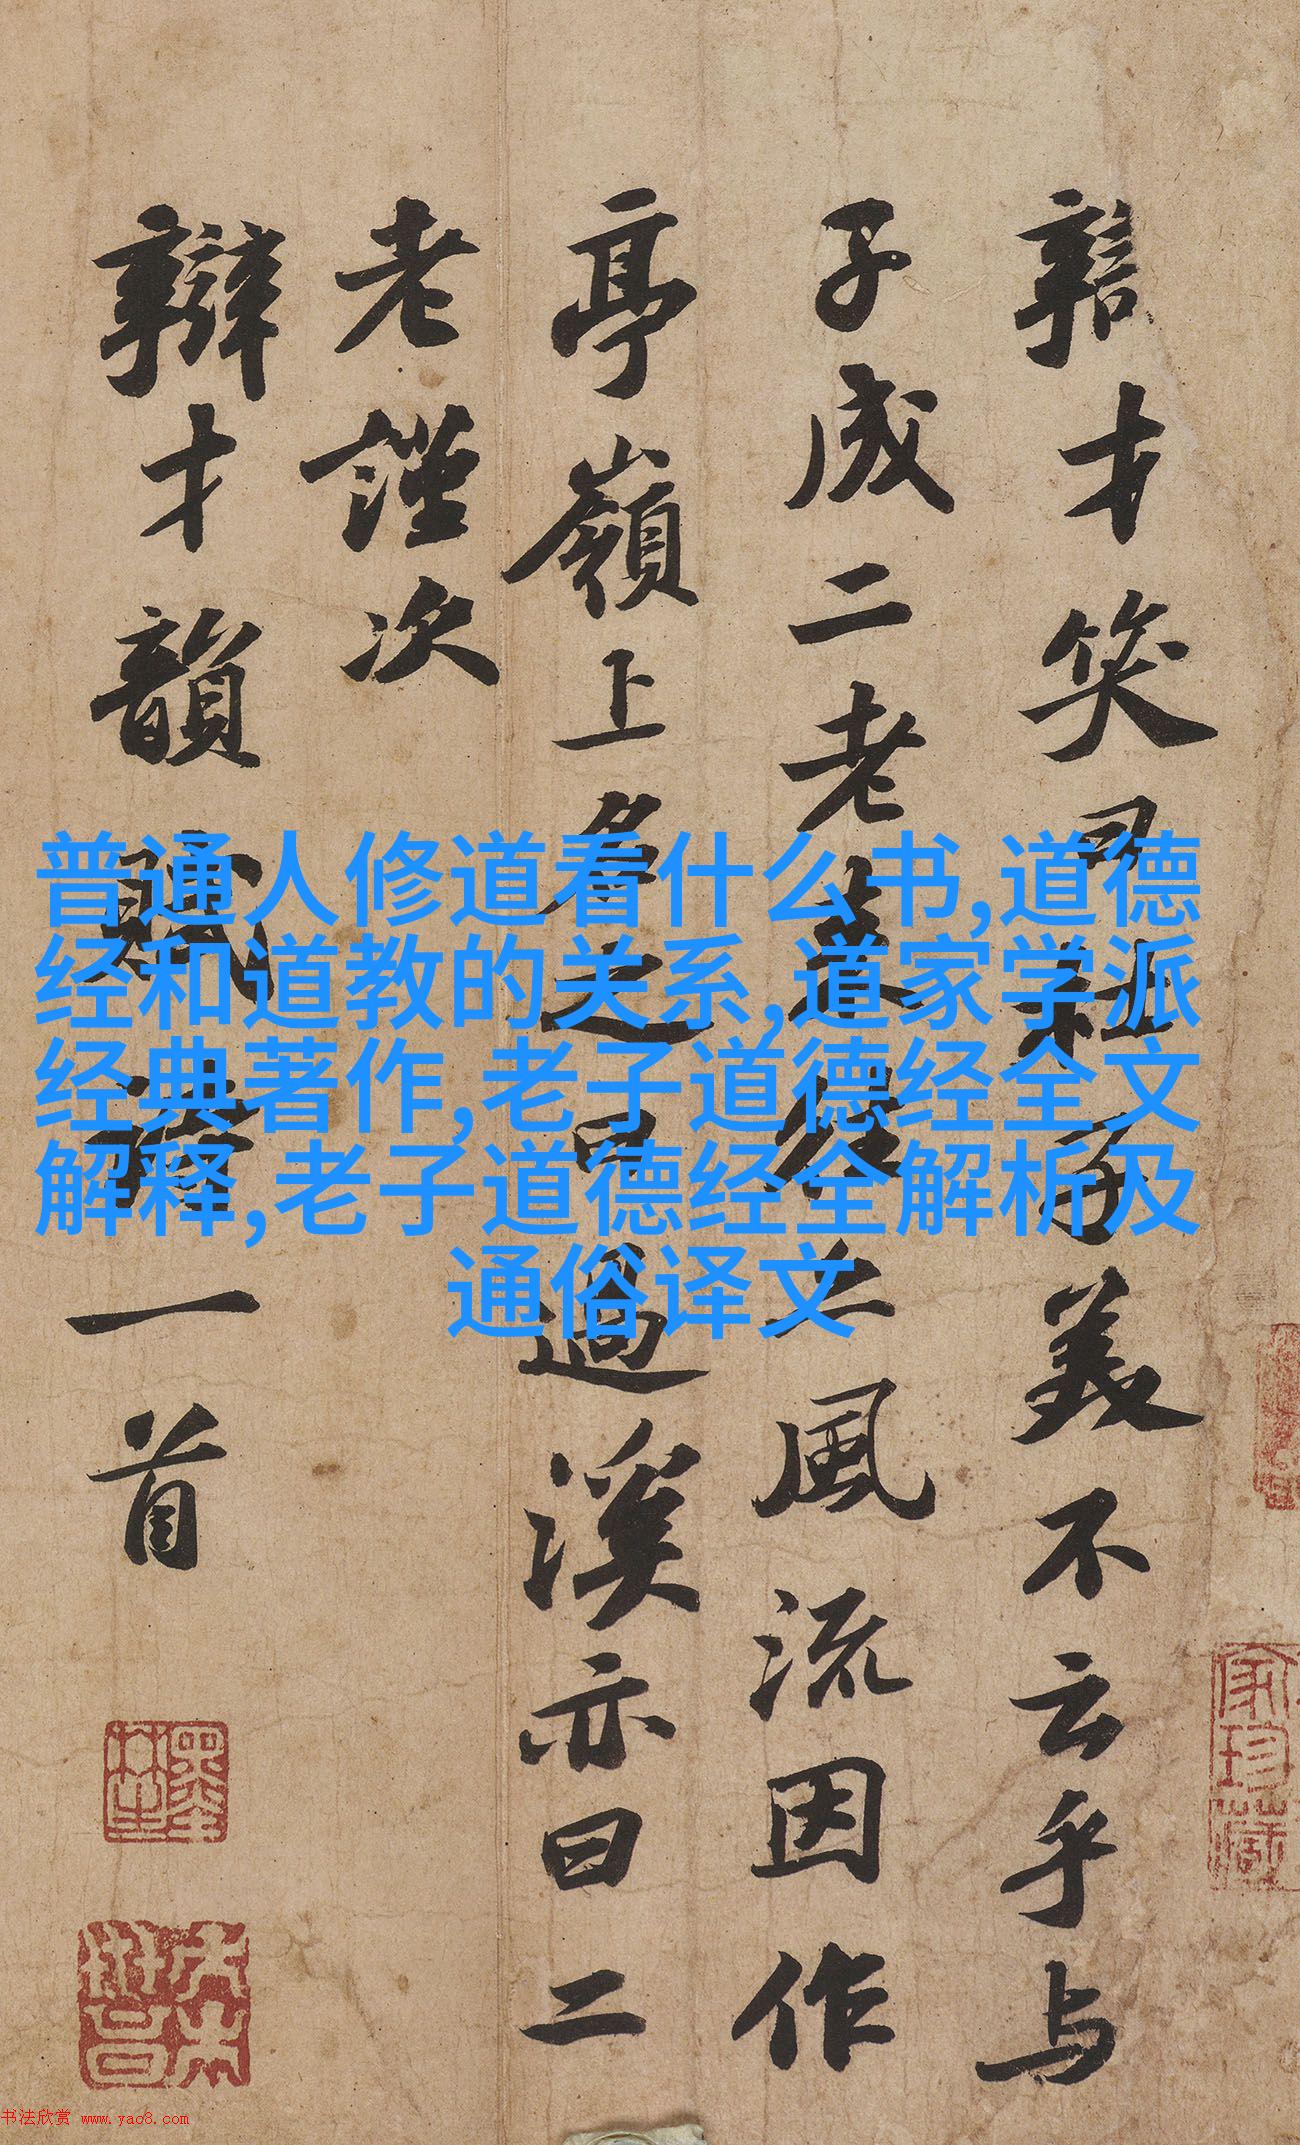 辯才笑曰杜子美不云乎与
子成二老来往亦風流因作
亭嶺上名之曰過溪亦曰二
老謹次
辯才韻賦詩一首
普通人修道看什么书,道德
经和道教的关系,道家学派
经典著作,老子道德经全文
解释,老子道德经全解析及
通俗译文
家珍藏
书法欣赏 www.yac8.com